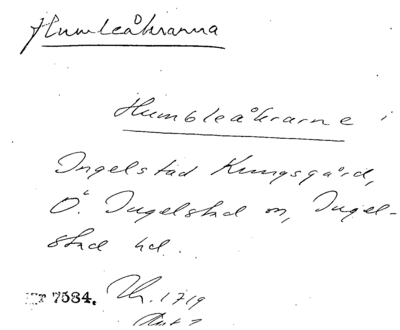 Humleåkranna
Humbleåkrarne i
Ingelstad Kungsgård,
Ö. Ingelstad sn, Ingel-
stad hd.
7584. Th. 1719